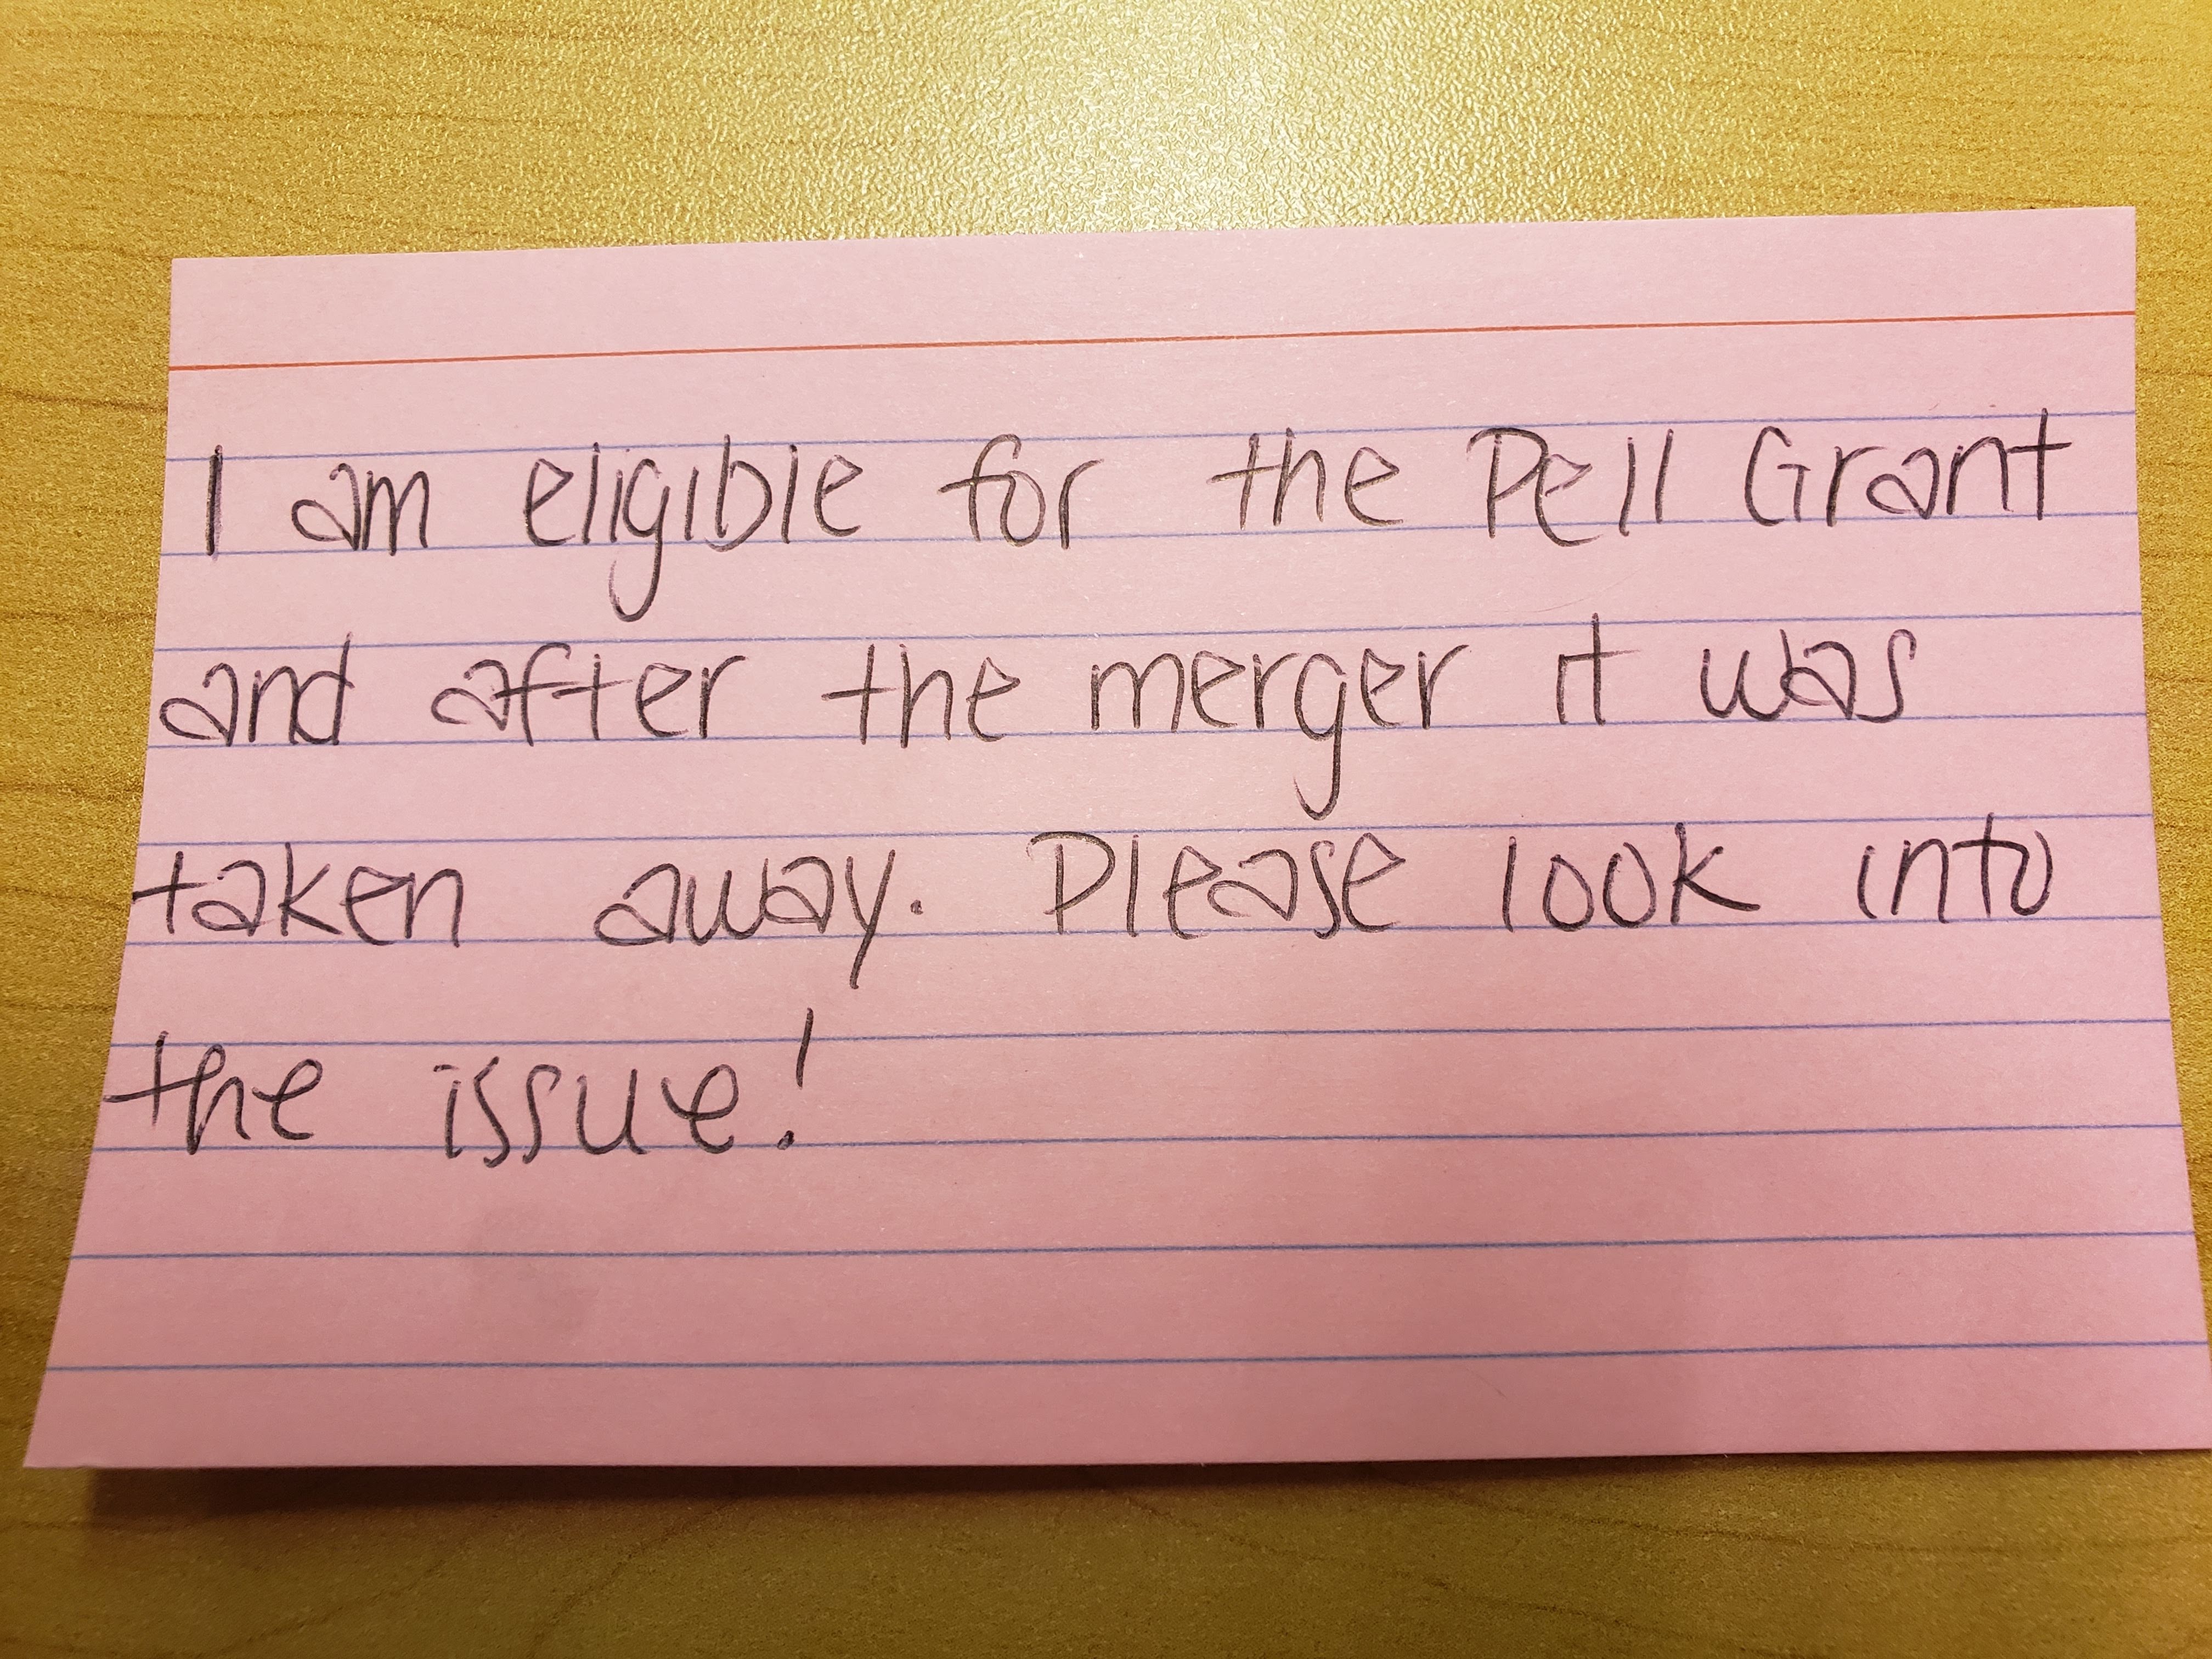 I am eligible for the Pell Grant
and after the merger it was
taken away. Please look into
the issue!